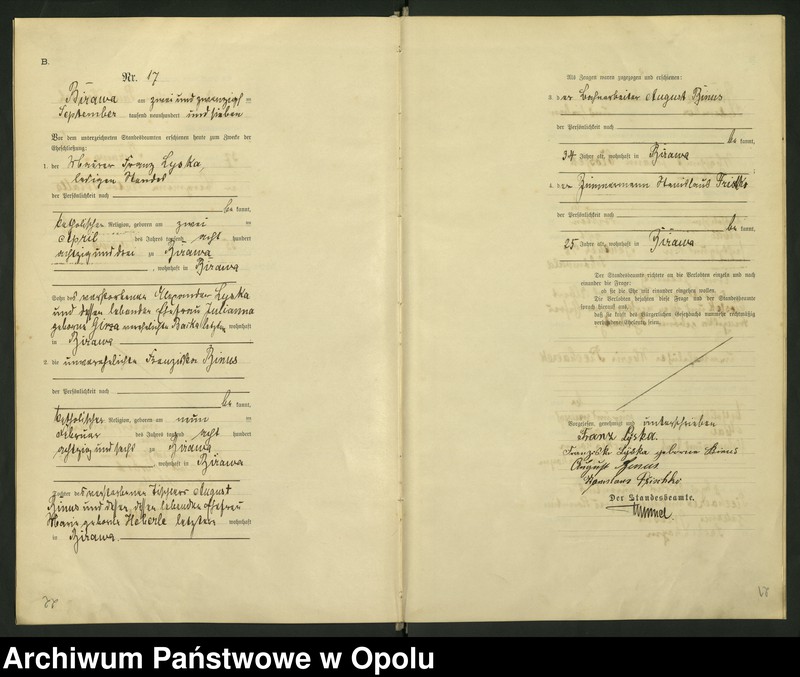 B.
Nr. 17
Birawa am zwei und zwanzigsten
September tausend neunhundert und sieben
Vor dem unterzeichneten Standesbeamten erschienen heute zum Zwecke der
Eheschließung:
1. der Maurer Franz Lyska,
ledigen Standes
der Persönlichkeit nach
be kannt,
katholischer Religion, geboren am zwei
April des Jahres tausend acht hundert
achtzig und drei zu Birawa
, wohnhaft in Birawa
Sohn des verstorbenen Alexander Lyska
und dessen lebender Ehefrau Julianna
geborene Girsa wohnhaft
in Birawa
2. die unverehelichte Franziska Binus
der Persönlichkeit nach
be kannt,
katholischer Religion, geboren am neun
Februar des Jahres tausend acht hundert
achtzig und sechs zu Birawa
, wohnhaft in Birawa
Tochter des verstorbenen August
Binus und lebenden Ehefrau
Marie geborene Heberle letztere wohnhaft
in Birawa.
Als Zeugen waren zugezogen und erschienen:
3. der Bahnarbeiter August Binus
der Persönlichkeit nach
be kannt,
34 Jahre alt, wohnhaft in Birawa
4. der Zimmermann Stanislaus
der Persönlichkeit nach
be kannt,
25 Jahre alt, wohnhaft in Birawa
Der Standesbeamte richtete an die Verlobten einzeln und nach
einander die Frage:
ob sie die Ehe mit einander eingehen wollen.
Die Verlobten bejahten diese Frage und der Standesbeamte
sprach hierauf aus,
daß sie kraft des Bürgerlichen Gesetzbuchs nunmehr rechtmäßig
verbundene Eheleute seien.
Vorgelesen, genehmigt und unterschrieben
Franz Lyska.
Franziska Lyska geborene Binus
August Binus
Stanislaus
Der Standesbeamte.
Archiwum Państwowe w Opolu